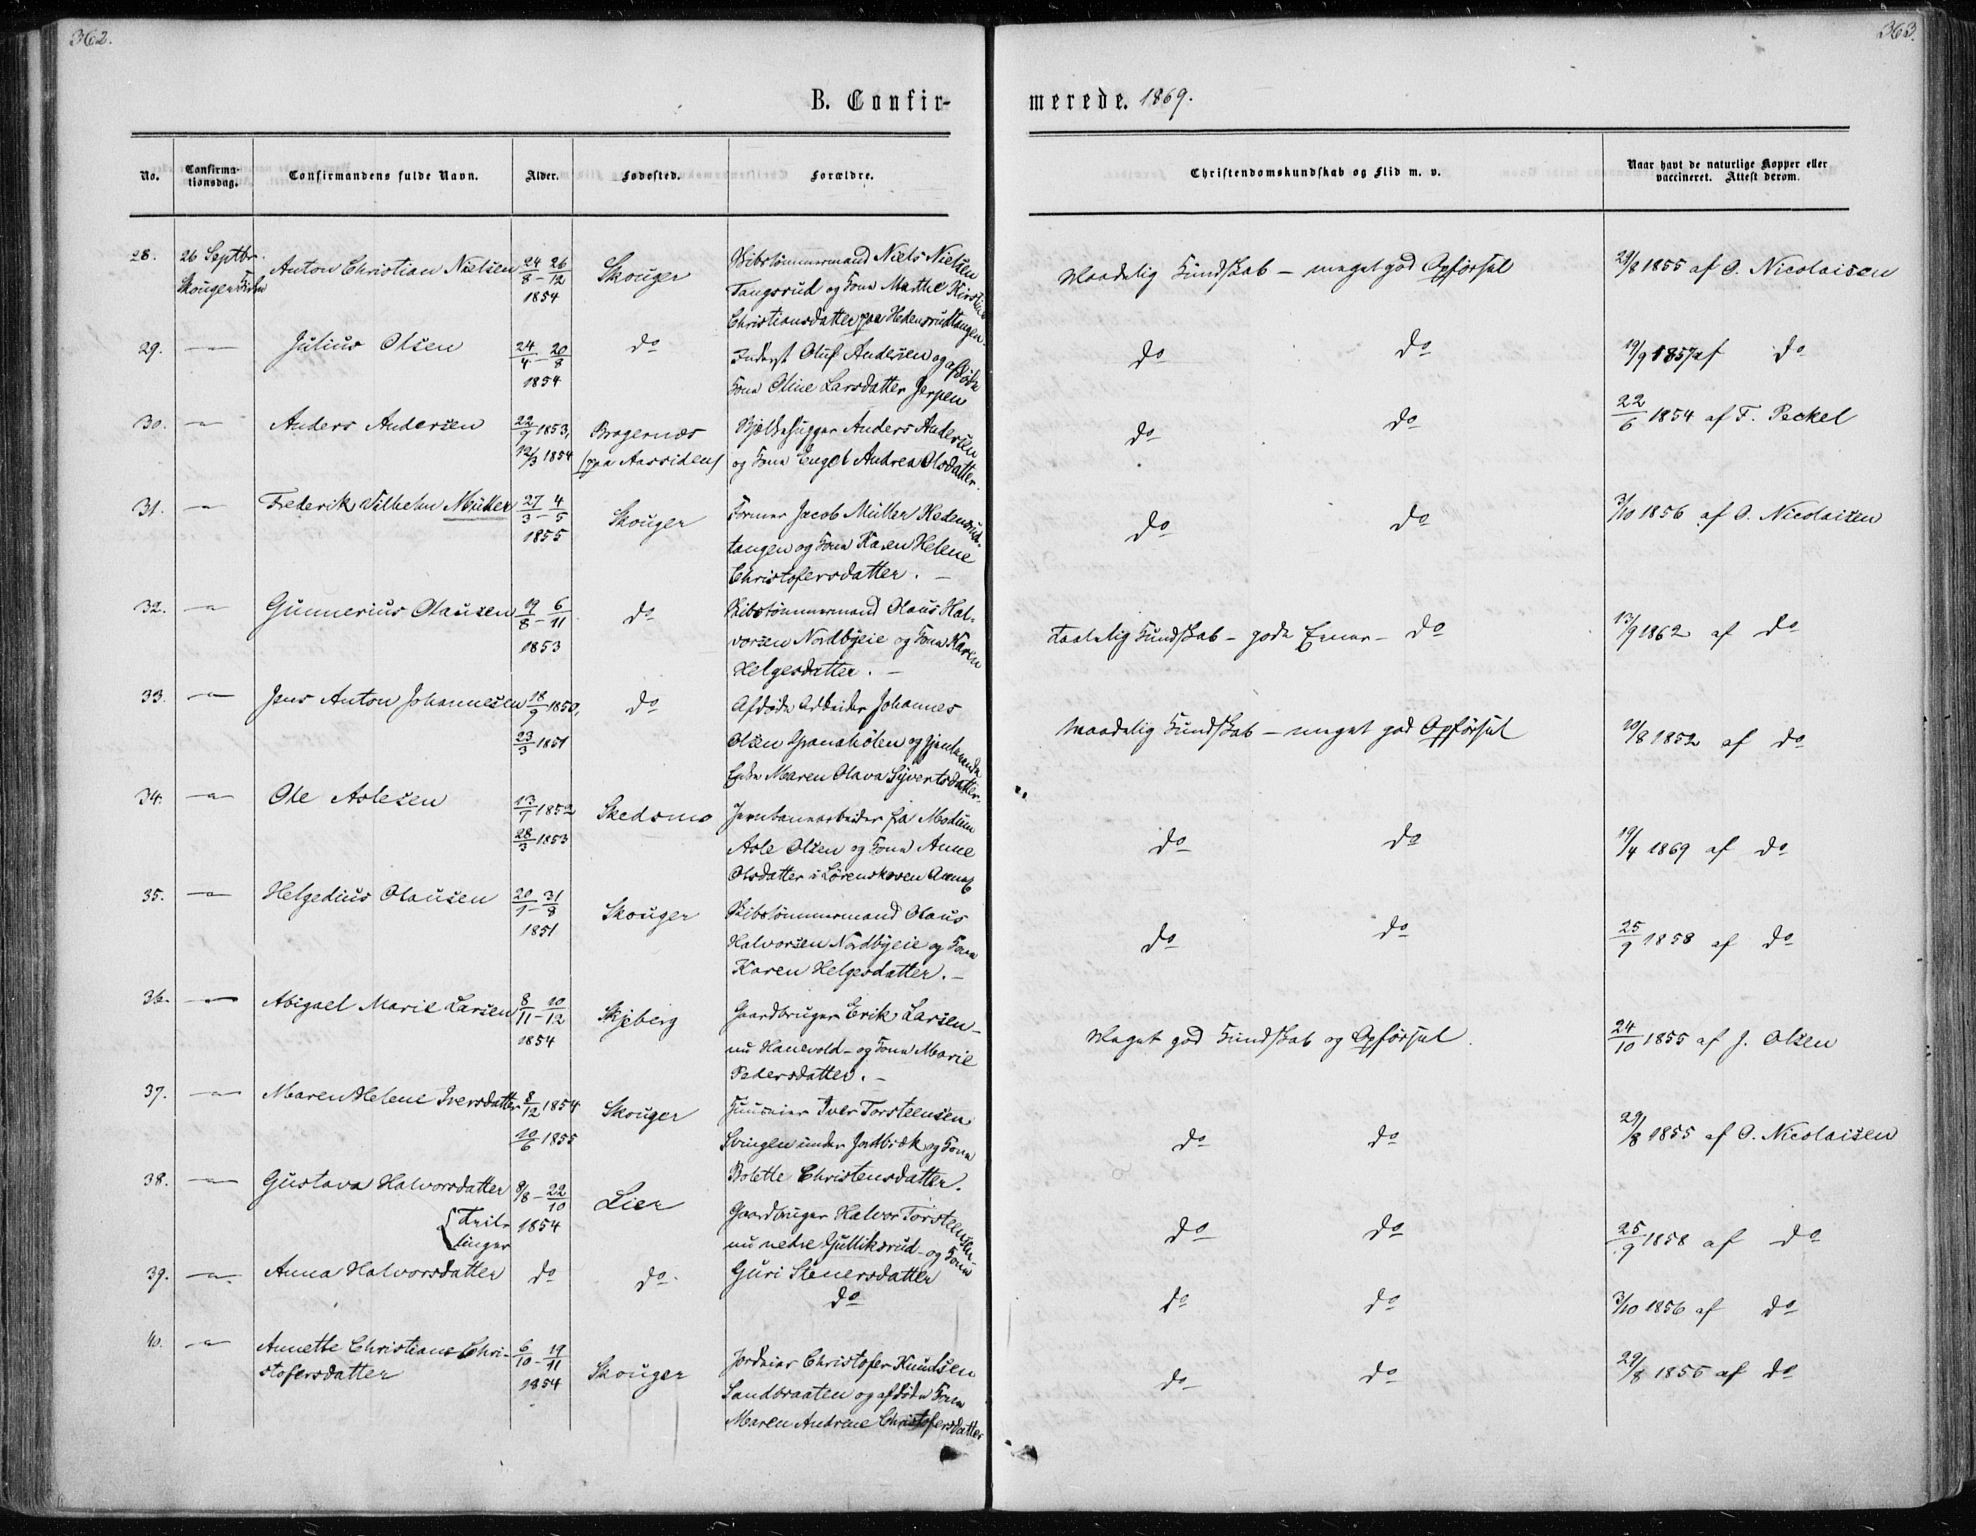 362.
363.
B. Confirmerede. 1869.
No.
Confirmationsdag.
Confirmandens fulde Navn.
Alder.
Fødested.
Forældre.
Christendomskundskab og Flid m. v.
Naar havt de naturlige Kopper eller vaccineret. Attest derom.
28. 26 Septbr. Skouger Anton Christian Nielsen 24/8 - 26/12 1854 Skouger
Skibstømmermand Niels Nielsen
Tangsrud og Kone Marthe Kirstine
Christiansdatter paa Hedensrudtangen.
Maadelig Kundskab – meget god Opførsel 29/8 1855 af O. Nicolaisen
29. — Julius Olsen 24/4 - 20/8 1854 do
Inderst Oluf Andersen og afdøde
Kone Oline Larsdatter Jerpen
do do 19/9 1857 af do
30. — Anders Andersen 22/9 1853, 12/3 1854 Bragernæs (paa Aassiden)
Bjelkehugger Anders Andersen
og Kone Engel Andrea Olsdatter.
do do 22/6 1854 af F. Peckel
31. — Frederik Vilhelm Müller 27/3 - 4/5 1855 Skouger
Former Jacob Müller Hedensrud-
tangen og Kone Karen Helene
Christofersdatter. —
do do 3/10 1856 af O. Nicolaisen
32. — Gunnerius Olausen 19/8 - 6/11 1853 do
Skibstømmermand Olaus Hal-
vorsen Nordbyeie og Kone Karen
Helgesdatter. —
Taalelig Kundskab – gode Evner – do 13/9 1862 af do
33. — Jens Anton Johannesen 18/9 1850, 23/3 1851 do
Afdøde Arbeider Johannes
Olsen Spanahølen og gjenlevende
Enke Maren Olava Syvertsdatter.
Maadelig Kundskab – meget god Opførsel 10/8 1852 af do
34. — Ole Aslesen 13/7 1852 28/3 1853 Skedsmo
Jernbanearbeider fra Modum
Asle Olsen og Kone Anne
Olsdatter i Lørenskoven Annex
do do 19/4 1869 af do
35. — Helgedius Olausen 20/1 - 31/8 1851 Skouger
Skibstømmermand Olaus
Halvorsen Nordbyeie og Kone
Karen Helgesdatter. —
do do 25/9 1858 af do
36. — Abigael Marie Larsen 8/11 - 10/12 1854 Skjeberg
Gaardbruger Erik Larsen –
nu Hanevold – og Kone Marie
Pedersdatter. —
Meget god Kundskab og Opførsel. 24/10 1855 af J. Olsen
37. — Maren Helene Iversdatter 8/12 1854 10/6 1855 Skouger
Huuseier Iver Torsteensen
Svingen under Jordbræk og Kone
Bolette Christensdatter.
do do 29/8 1855 af O. Nicolaisen
38. — Gustava Halvorsdatter 8/8 - 22/10 1854 Lier
{Tvil-
linger
Gaardbruger Halvor Torsteensen
nu nedre Gulliksrud – og Kone
Guri Stenersdatter
do do 25/9 1858 af do
39. — Anna Halvorsdatter do do. do
do do 3/10 1856 af do
40. — Annette Christiane Chri-
stofersdatter 6/10 - 19/11 1854 Skouger
Jordeier Christofer Knudsen
Sandbraaten og afdøde Kone
Maren Andrine Christofersdatter
do do 29/8 1856 af do